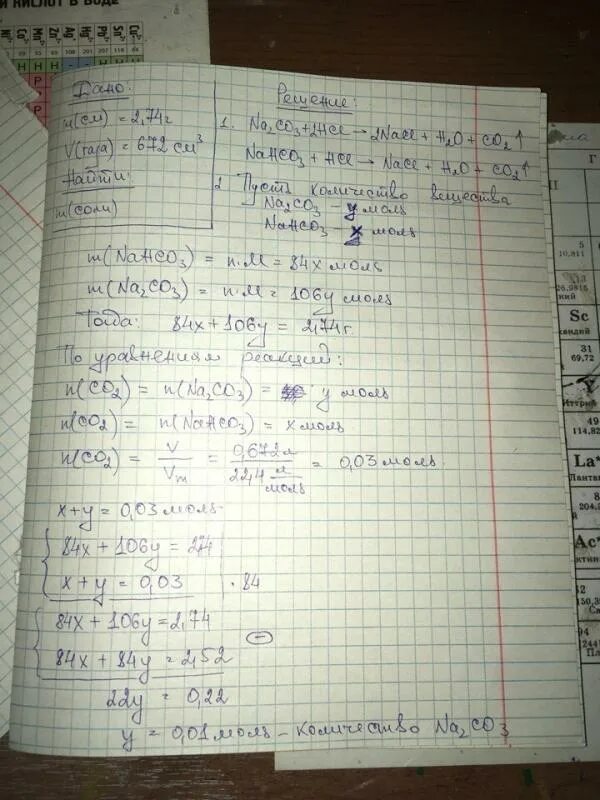 И КИСЛОТ В ВОДЕ
Дано:
m(см) = 2,74г
V(газа) = 672 см³
Найти:
m(соли)
Решение:
1. Na₂CO₃+2HCl → 2NaCl + H₂O + CO₂↑
NaHCO₃ + HCl → NaCl + H₂O + CO₂↑
2 Пусть количество вещества
Na₂CO₃ – y моль
NaHCO₃ – x моль
m(NaHCO₃) = n·M = 84x моль
m(Na₂CO₃) = n·M = 106y моль
Тогда: 84x + 106y = 2,74г.
По уравнениям реакций:
n(CO₂) = n(Na₂CO₃) = y моль
n(CO₂) = n(NaHCO₃) = x моль
n(CO₂) = V/Vm = 0,672л / 22,4 л/моль = 0,03 моль
x+y = 0,03 моль
84x + 106y = 2,74
x + y = 0,03 | · 84
84x + 106y = 2,74
84x + 84y = 2,52
22y = 0,22
y = 0,01 моль – количество Na₂CO₃
II
Г
5
10,811
26,9815
ний
Sc
кандий
31
69,72
Y
Иттрий
49
114,82
La*
Лантан
Ac*